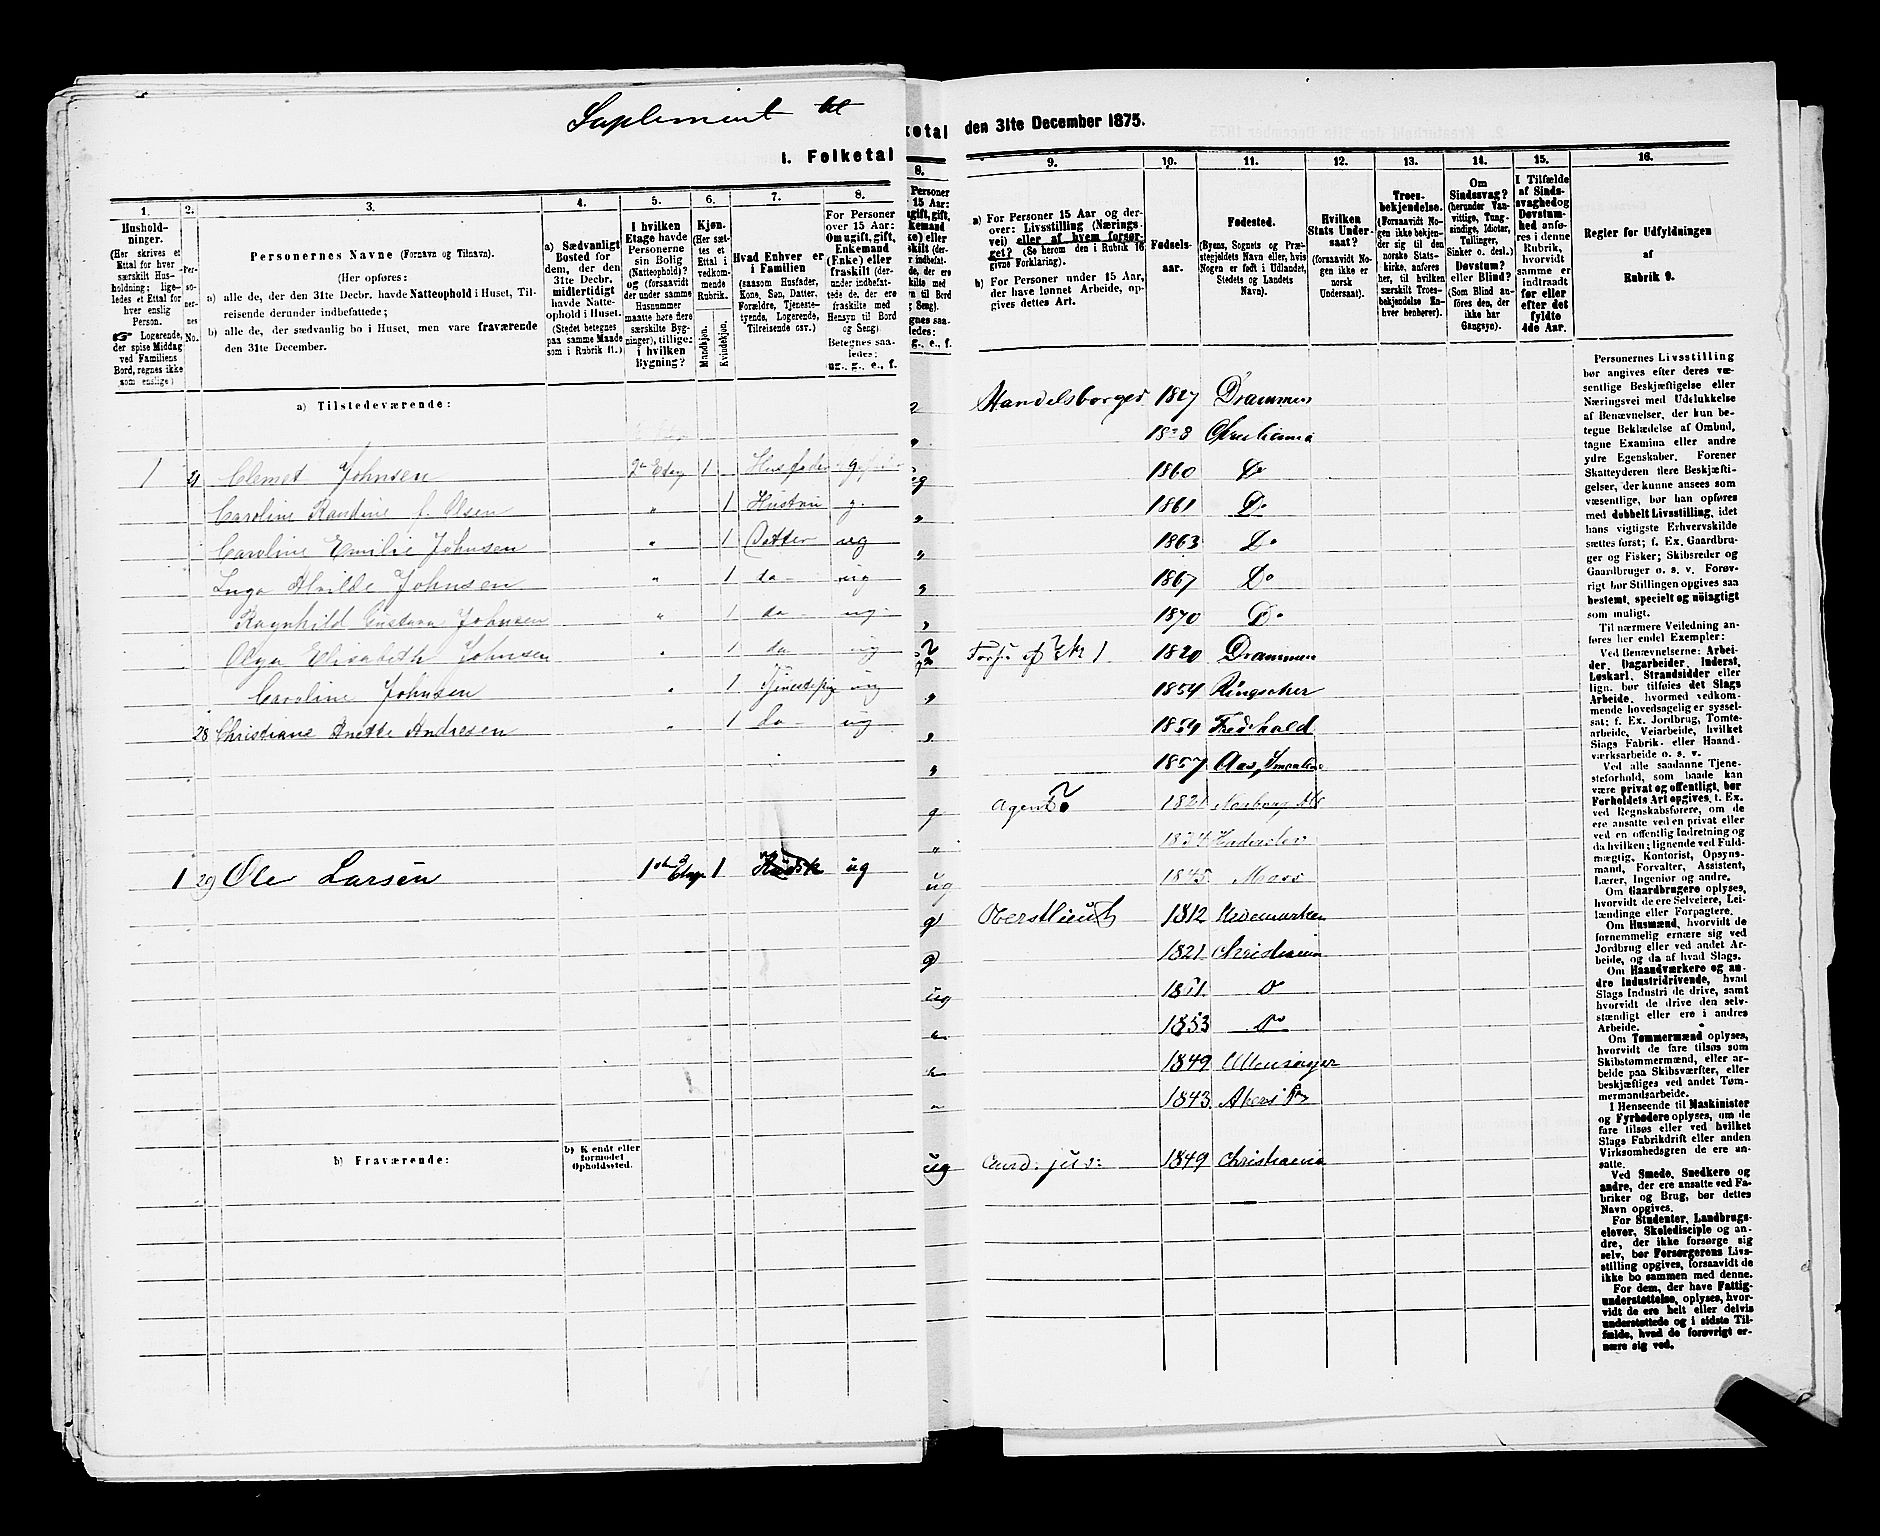 Suplement til
1. Folketal
1.
2.
3.
4.
5.
6.
7.
8.
Hushold-
ninger.
(Her skrives et
Ettal for hver
særskilt Hus-
holdning; lige-
ledes et Ettal for
hver enslig
Person.
Logerende,
der spise Middag
ved Familiens
Bord, regnes ikke
som enslige)
Per-
so-
ner-
nes
No.
Personernes Navne (Fornavn og Tilnavn).
(Her opføres:
a) alle de, der den 31te Decbr. havde Natteophold i Huset, Til-
reisende derunder indbefattede;
b) alle de, der sædvanlig bo i Huset, men vare fraværende
den 31te December.
a) Sædvanligt
Bosted for
dem, der den
31te Decbr.
midlertidigt
havde Natte-
ophold i Huset.
(Stedet betegnes
paa samme Maade
som i Rubrik 11.)
I hvilken
Etage havde
Personerne
sin Bolig
(Natteophold)?
og (forsaavidt
der under samme
Husnummer
maatte høre flere
særskilte Byg-
ninger), tillige:
i hvilken
Bygning?
Kjøn.
(Her sæt-
tes et
Ettal i
vedkom-
mende
Rubrik.
Mandkjøn.
Kvindekjøn.
Hvad Enhver er
i Familien
(saasom Husfader,
Kone, Søn, Datter,
Forældre, Tjeneste-
tyende, Logerende,
Tilreisende osv.)
For Personer
over 15 Aar:
Om ugift, gift,
Enkemand
(Enke) eller
fraskilt (der-
under indbefat-
tede de, der ere
fraskilte med
Hensyn til Bord
og Seng).
Betegnes saa-
ledes:
ug., g., e., f.
a) Tilstedeværende:
1 21 Clemet Johnsen 2den Etag 1 Husfader g
Caroline Randine f. Olsen " 1 Hustru g.
Caroline Emilie Johnsen " 1 Datter ug
Inga Alvilde Johnsen " 1 do ug
Ragnhild Gustava Johnsen " 1 do ug
Olga Elisabeth Johnsen " 1 do ug
Caroline Johnsen " 1 ug
28 Christiane Anette Andresen " 1 do ug
1 29 Ole Larsen 1ste Etage 1 ug
b) Fraværende:
b) Kjendt eller
formodet
Opholdssted.
ketal den 31te December 1875.
8.
9.
10.
11.
12.
13.
14.
15.
16.
a) For Personer 15 Aar og der-
over: Livsstilling (Nærings-
vei) eller af hvem forsør-
get? (Se herom den i Rubrik 16
givne Forklaring).
b) For Personer under 15 Aar,
der have lønnet Arbeide, op-
gives dettes Art.
Fødsels-
aar.
Fødested.
(Byens, Sognets og Præ-
stegjeldets Navn eller, hvis
Nogen er født i Udlandet,
Stedets og Landets
Navn).
Hvilken
Stats Under-
saat?
(forsaavidt No-
gen ikke er
norsk
Undersaat).
Troes-
bekjendelse.
(Forsaavidt No-
gen ikke bekjen-
der sig til den
norske Stats-
kirke, anføres
her, til hvilken
særskilt Troes-
bekjendelse En-
hver henhører).
Om
Sindssvag?
(herunder Van-
vittige, Tung-
sindige, Idioter,
Tullinger,
Sinker o. desl.)
Døvstum?
eller Blind?
(Som Blind an-
føres den, der
ikke har
Gangsyn).
I Tilfælde
af Sinds-
svaghed og
Døvstum-
hed anfø-
res i denne
Rubrik,
hvorvidt
samme er
indtraadt
før eller
efter det
fyldte
4de Aar.
Regler for Udfyldningen
af
Rubrik 9.
Handelsborger 1827 Drammen
Christiania
ug 1860 Do
" 1861 Do
" 1863 Do
" 1867 Do
" 1870 Do
1820 Drammen
" 1854 Ringsaker
" 1854 Fredrhald
" 1857
g Agent 1821
"
ug 1845 Moss
g Oberstlieut 1812 Hedemarken
g 1821 Christiania
ug 1851 Do
1853 Do
1849 Ullensager
1843 Akers Pr
ug Cand: jus: 1849 Christiania
Personernes Livsstilling
bør angives efter deres væ-
sentlige Beskjæftigelse eller
Næringsvei med Udelukkelse
af Benævnelser, der kun be-
tegne Beklædelse af Ombud,
tagne Examina eller andre
ydre Egenskaber. Forener
Skatteyderen flere Beskjæfti-
gelser, der kunne ansees som
væsentlige, bør han opføres
med dobbelt Livsstilling, idet
hans vigtigste Erhvervskilde
sættes først; f. Ex. Gaardbru-
ger og Fisker; Skibsreder og
Gaardbruger o. s. v. Forøv-
rigt bør Stillingen opgives saa
bestemt, specielt og nøiagtigt
som muligt.
Til nærmere Veiledning an-
føres her endel Exempler:
Ved Benævnelserne: Arbei-
der, Dagarbeider, Inderst,
Løskarl, Strandsidder eller
lign. bør tilføies det Slags
Arbeide, hvormed vedkom-
mende hovedsagelig er syssel-
sat; f. Ex. Jordbrug, Tomte-
arbeide, Veiarbeide, hvilket
Slags Fabrik- eller Haand-
værksarbeide o. s. v.
Ved alle saadanne Tjene-
steforhold, som baade kan
være privat og offentligt, bør
Forholdets Art opgives, f. Ex.
ved Regnskabsførere, om de
ere ansatte ved en privat eller
ved en offentlig Indretning og
da hvilken; lignende ved Fuld-
mægtig, Kontorist, Opsyns-
mand, Forvalter, Assistent,
Lærer, Ingeniør og andre.
Om Gaardbrugere oplyses,
hvorvidt de ere Selveiere, Lei-
lændinge eller Forpagtere.
Om Husmænd, hvorvidt de
fornemmelig ernære sig ved
Jordbrug eller ved andet Ar-
beide, og da af hvad Slags.
Om Haandværkere og an-
dre Industridrivende, hvad
Slags Industri de drive, samt
hvorvidt de drive den selv-
stændigt eller ere i andres
Arbeide.
Om Tømmermænd oplyses,
hvorvidt de fare tilsøs som
Skibstømmermænd, eller ar-
beide paa Skibsværfter, eller
beskjæftiges ved andet Tøm-
mermandsarbeide.
I Henseende til Maskinister
og Fyrbødere oplyses, om de
fare tilsøs eller ved hvilket
Slags Fabrikdrift eller anden
Virksomhedsgren de ere an-
satte.
Ved Smede, Snedkere og
andre, der ere ansatte ved Fa-
briker og Brug, bør dettes
Navn opgives.
For Studenter, Landbrugs-
elever, Skoledisciple og an-
dre, der ikke forsørge sig
selv, bør Forsørgerens Livs-
stilling opgives, forsaavidt de
ikke bo sammen med denne.
For dem, der have Fattig-
understøttelse, oplyses, hvor-
vidt de ere helt eller delvis
understøttede og i sidste Til-
fælde, hvad de forøvrigt er-
nære sig ved.